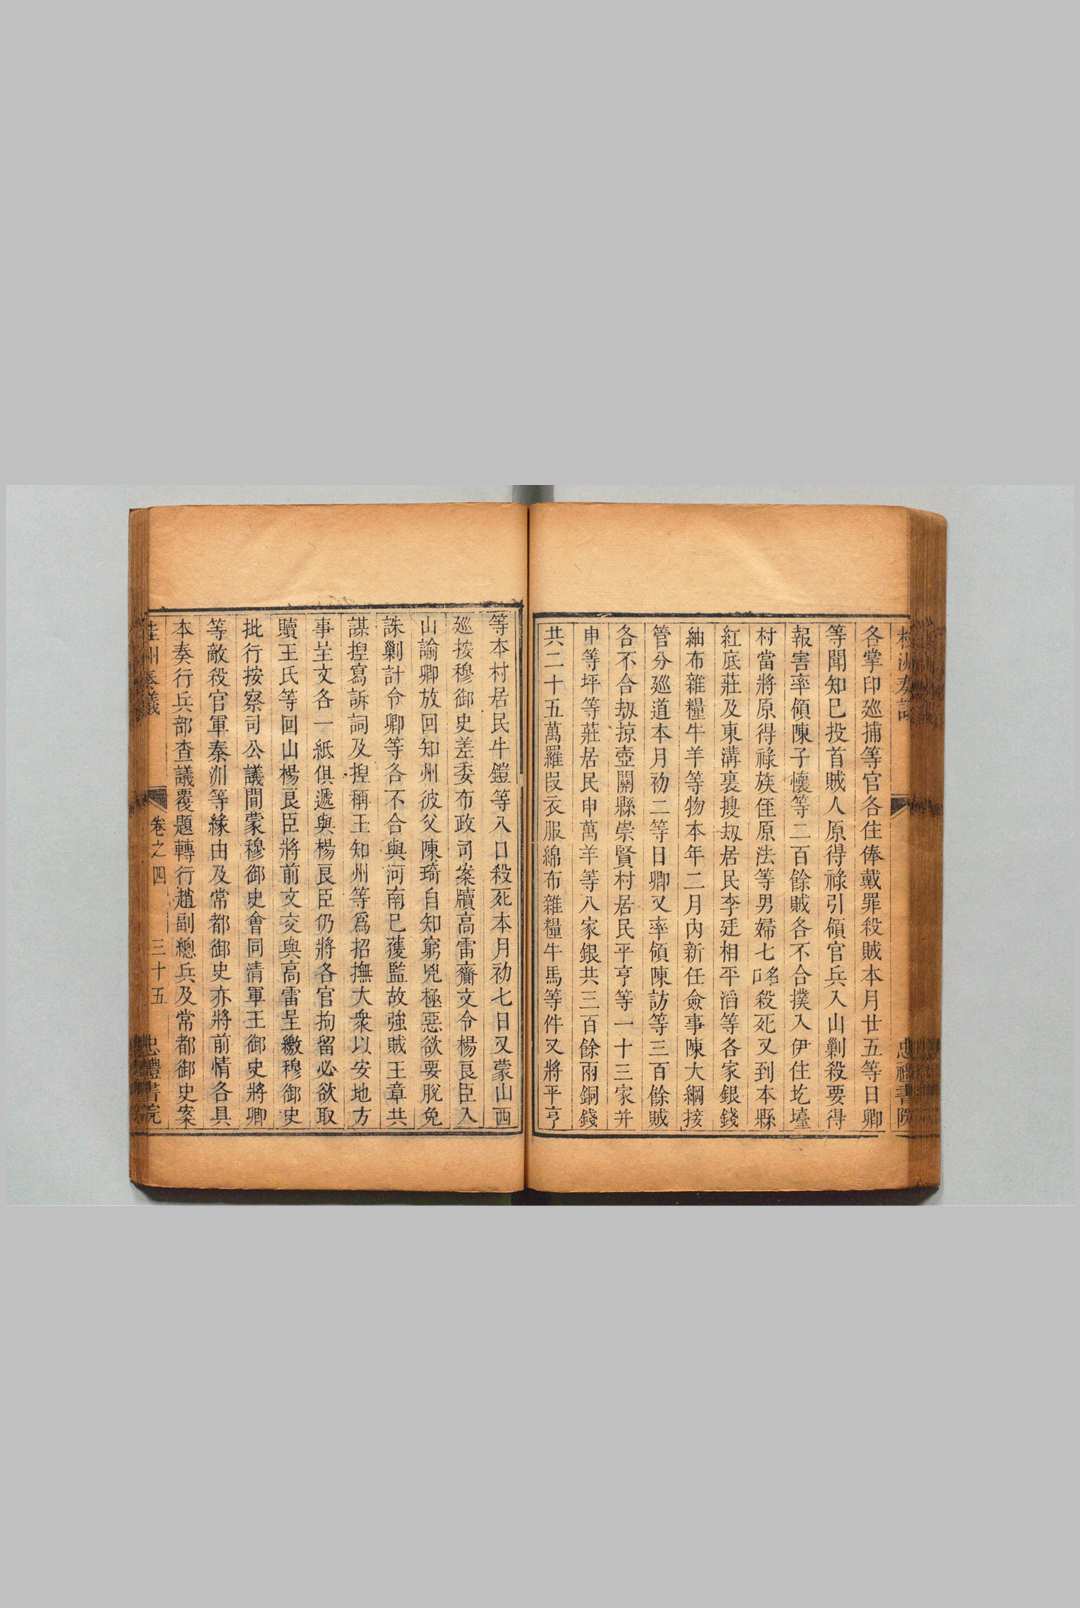 各掌印廵捕等官各住俸戴罪殺賊本月廿五等日卿
等聞知巳投首賊人原得祿引領官兵入山剿殺要得
報害率領陳子懷等二百餘賊各不合撲入伊住圪墶
村當將原得祿族侄原法等男婦七口殺死又到本縣
紅底莊及東溝裏搜刼居民李廷相平滔等各家銀錢
紬布雜糧牛羊等物本年二月內新任僉事陳大綱接
管分廵道本月初二等日卿又率領陳訪等三百餘賊
各不合刼掠壺關縣崇賢村居民平亨等一十三家并
申等坪等莊居民申萬羊等八家銀共三百餘兩銅錢
共二十五萬羅叚衣服綿布雜糧牛馬等件又將平亨
等本村居民牛鎧等入口殺死本月初七日又蒙山西
廵按穆御史差委布政司案牘高雷齎文令楊艮臣入
山諭卿放回知州彼父陳琦自知窮兇極惡欲要脫免
誅剿計令卿等各不合與河南巳獲監故強賊王章共
謀揑寫訴詞及揑稱王知州等爲招撫大衆以安地方
事呈文各一紙俱遞與楊艮臣仍將各官拘留必欲取
贖王氏等回山楊艮臣將前文交與高雷呈繳穆御史
批行按察司公議間蒙穆御史會同清軍王御史將卿
等敵殺官軍秦渊等緣由及常都御史亦將前情各具
本奏行兵部查議覆題轉行趙副總兵及常都御史案
桂州奏議
卷之四
三十五
忠禮書院